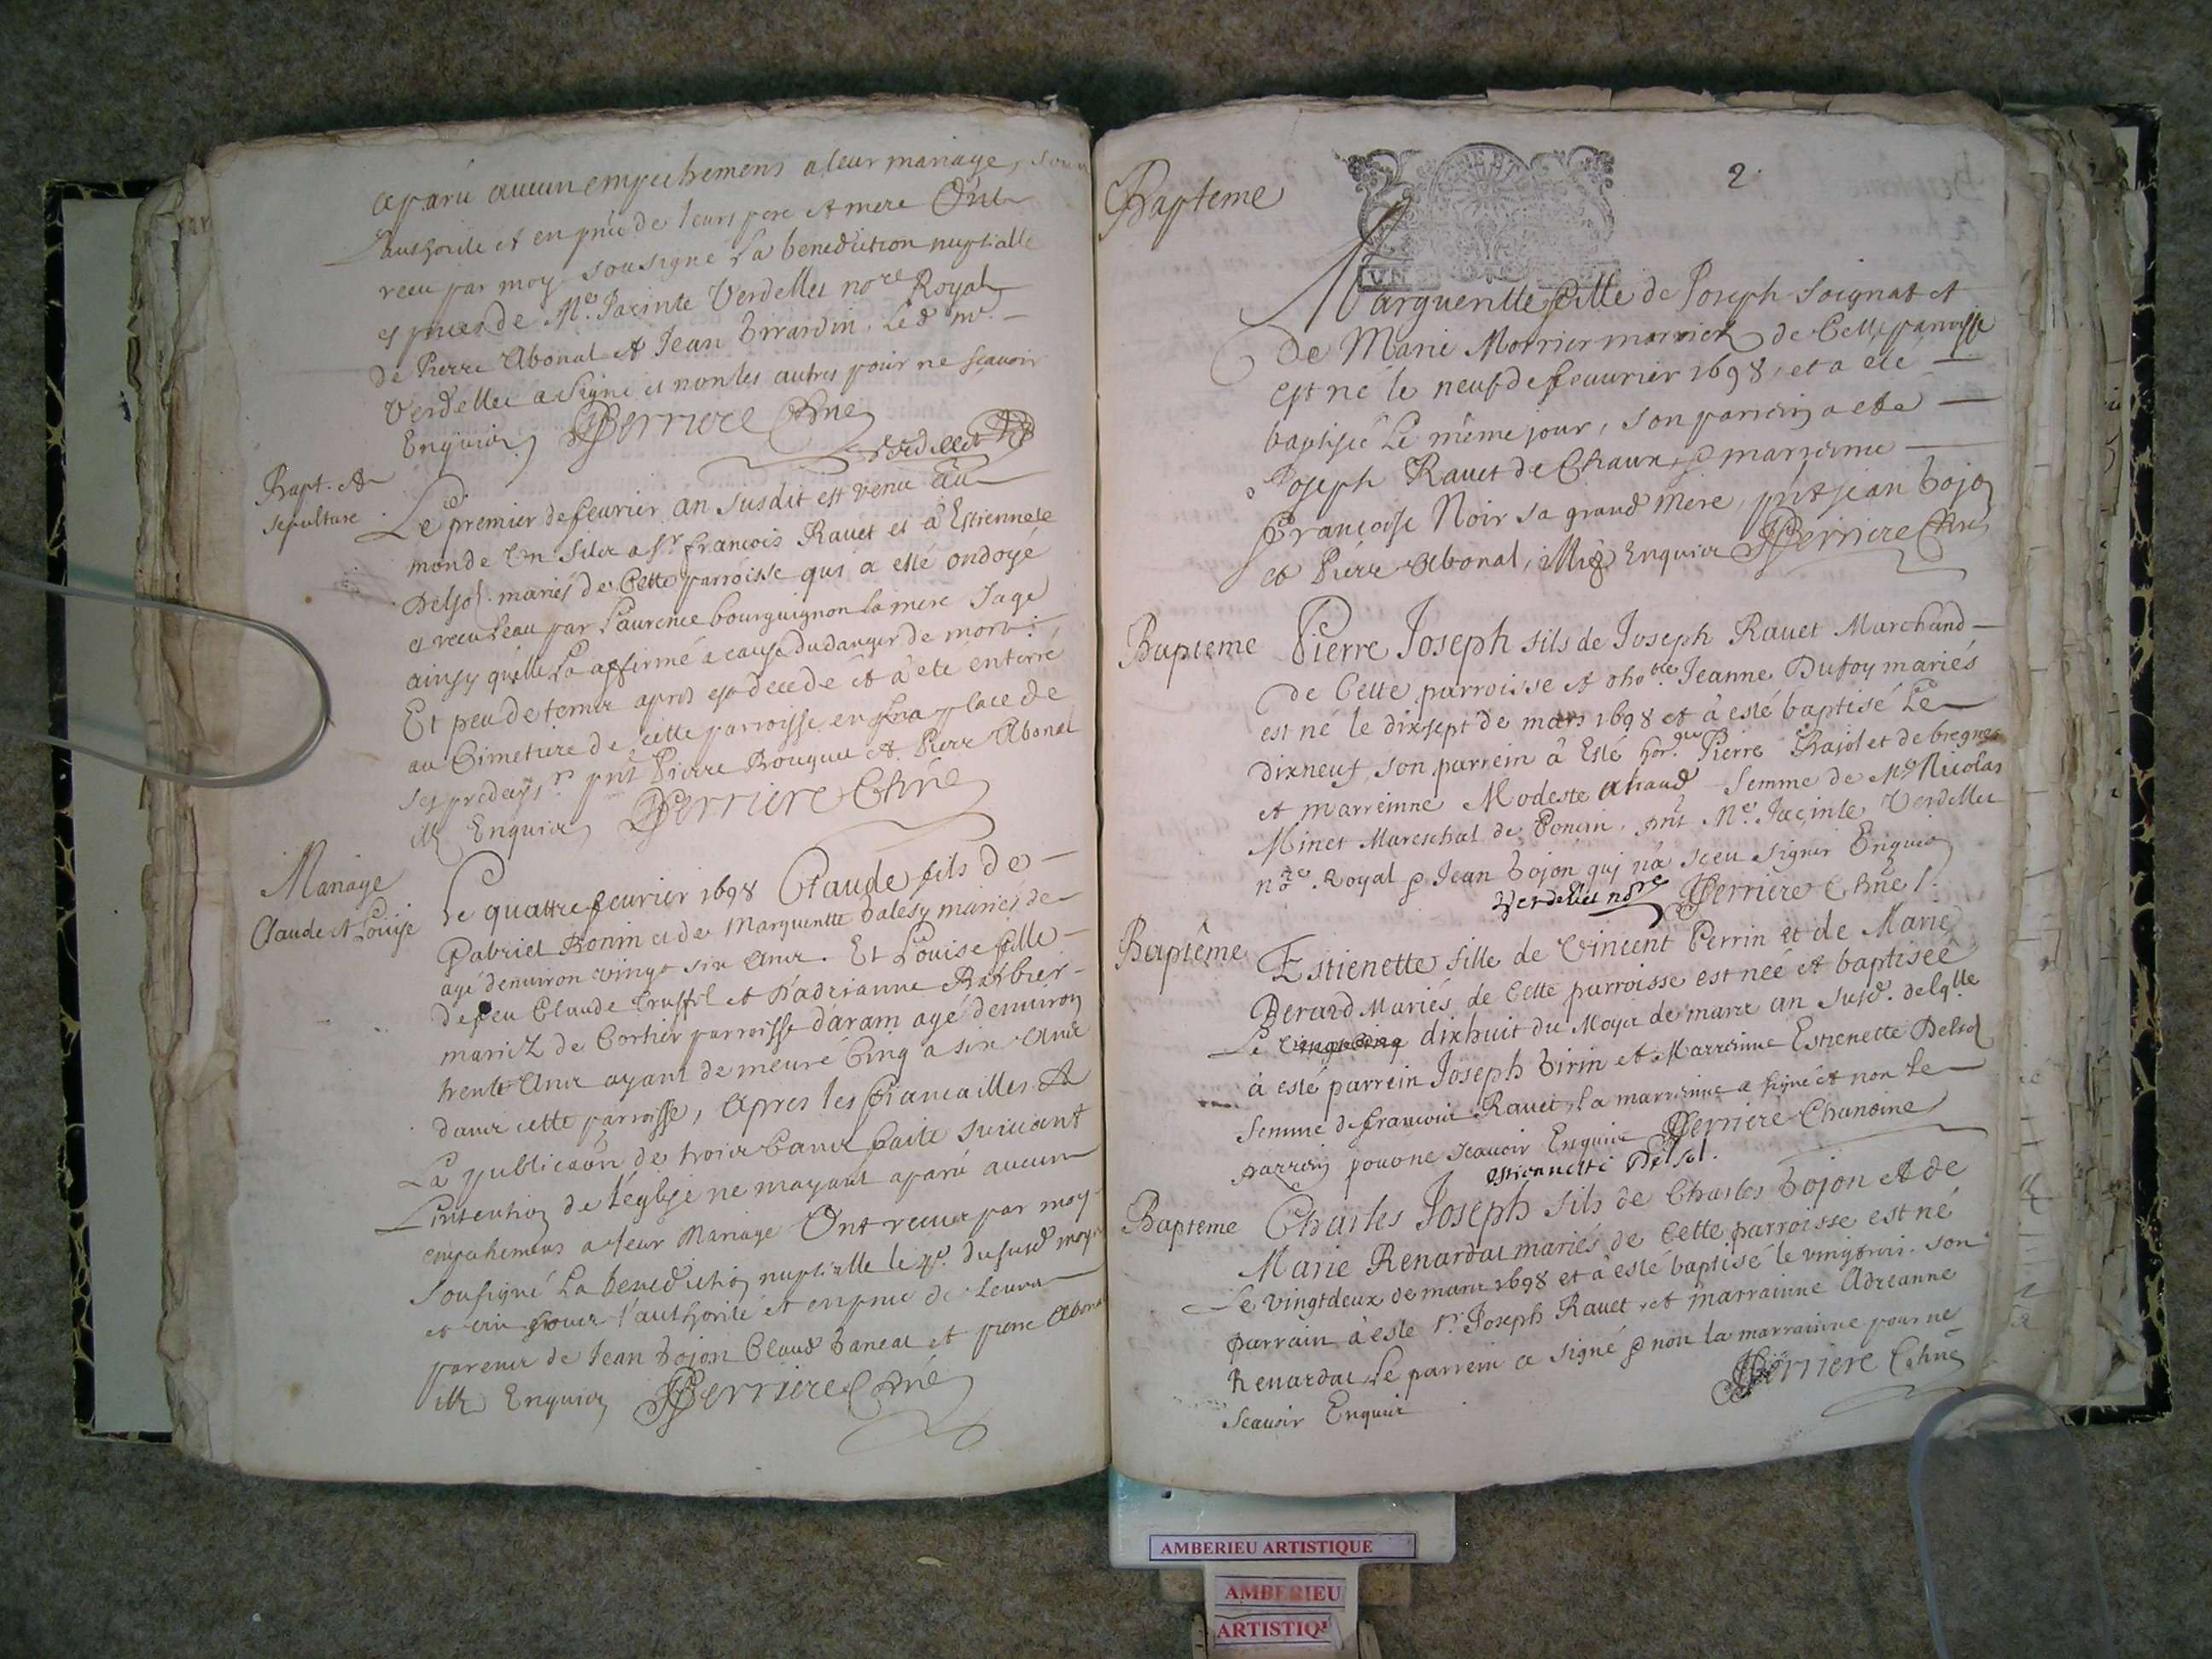 aparu aucun empechemens a leur mariage, sous
L'authorité et en pnce de leurs pere et mere Ont
receu par moy sousigné La benediction nuptialle
es pnces de Me. Jacinte Verdellet nore Royal
de Pierre Abonal et Jean Girardin. Led mr.
Verdellet a signé et non les autres pour ne scavoir
Enquis Perriere Chne
Verdellet
Bapt. et
sepulture
Le premier de feuvrier an susdit est venu au
monde Un filz a sr. francois Ravet et a Estiennete
Delsol mariés de Cette parroisse qui a esté ondoyé
et receu l'eau par Laurence bourguignon la mere sage
ainsy qu'elle L'a affirmé a cause du danger de mort
Et peu de temps apres est decedé et à eté enterré
au Cimetiere de cette parroisse en la place de
ses predeysrs pnt Pierre Bouquet et Pierre Abonal
Enquis Perriere Chne
Mariage
Claude et Louise
Le quattre feuvrier 1698 Claude fils de
Gabriel Bonin et de Margueritte balesy mariés de
agé denviron vingt six ans. Et Louise fille
de feu Claude Truffel et d'adrianne Barbier
mariez de Cortier parroisse daram agé denviron
trente Ans ayant demeuré Cinq a six Ans
dans cette parroisse, Apres les fiancailles et
La publicaon de trois bans faite suivant
L'intention de l'eglise ne m'ayant aparu aucun
empechemens a leur Mariage Ont receus par moy
sousigné La benediction nuptialle le 4e. du susd moys
et an sous l'authorité et en pnce de Leurs
parens de Jean bojon Claud baneal et pierre Abonal
Enquis Perriere Chne
2.
Bapteme
Margueritte fille de Joseph Soignat et
De Marie Morrier mariez de Cette parroisse
est né le neuf de feuvrier 1698 et a eté
baptisée Le même jour, son parrein a eté
Joseph Ravet de Chaux, marreine
Francoise Noir sa grand Mere, pnt Jean bojon
et Pierre Abonal, Enquis Perriere Chne
Bapteme
Pierre Joseph fils de Joseph Ravet Marchand
de Cette parroisse et d'hoble. Jeanne Dufoy mariés
est né le dixsept de mars 1698 et à esté baptisé Le
dixneuf, son parrein à Esté Pierre Chajol et de bregnes
et marreinne Modeste Ahaud femme de Mr. Nicolas
Minet Mareschal de Poncin, pnt Me. Jacinte Verdellet
nore. Royal Jean bojon qui n'a sceu signer Enquis
Verdellet nore Perriere Chne
Baptême
Estienette fille de Vincent Perrin et de Marie
Berard Mariés de Cette parroisse est née et baptisée
Le dixhuit du Moys de mars an susd. delqlle
à esté parrein Joseph Girin et Marreinne Estienette Delsol
femme de francois Ravet, la marreinne a signé et non le
parrein pour ne scavoir Enquis Perriere Chanoine
estiennette Delsol.
Bapteme
Charles Joseph fils de Charles bojon et de
Marie Renardat mariés de Cette parroisse est né
Le vingtdeux de mars 1698 et a esté baptisé le vingtrois. son
parrain à esté sr. Joseph Ravet et marrainne Adreanne
Renardat, Le parrein a signé non la marrainne pour ne
Scavoir Enquis
Perriere Chne
AMBERIEU ARTISTIQUE
AMBERIEU
ARTISTIQU